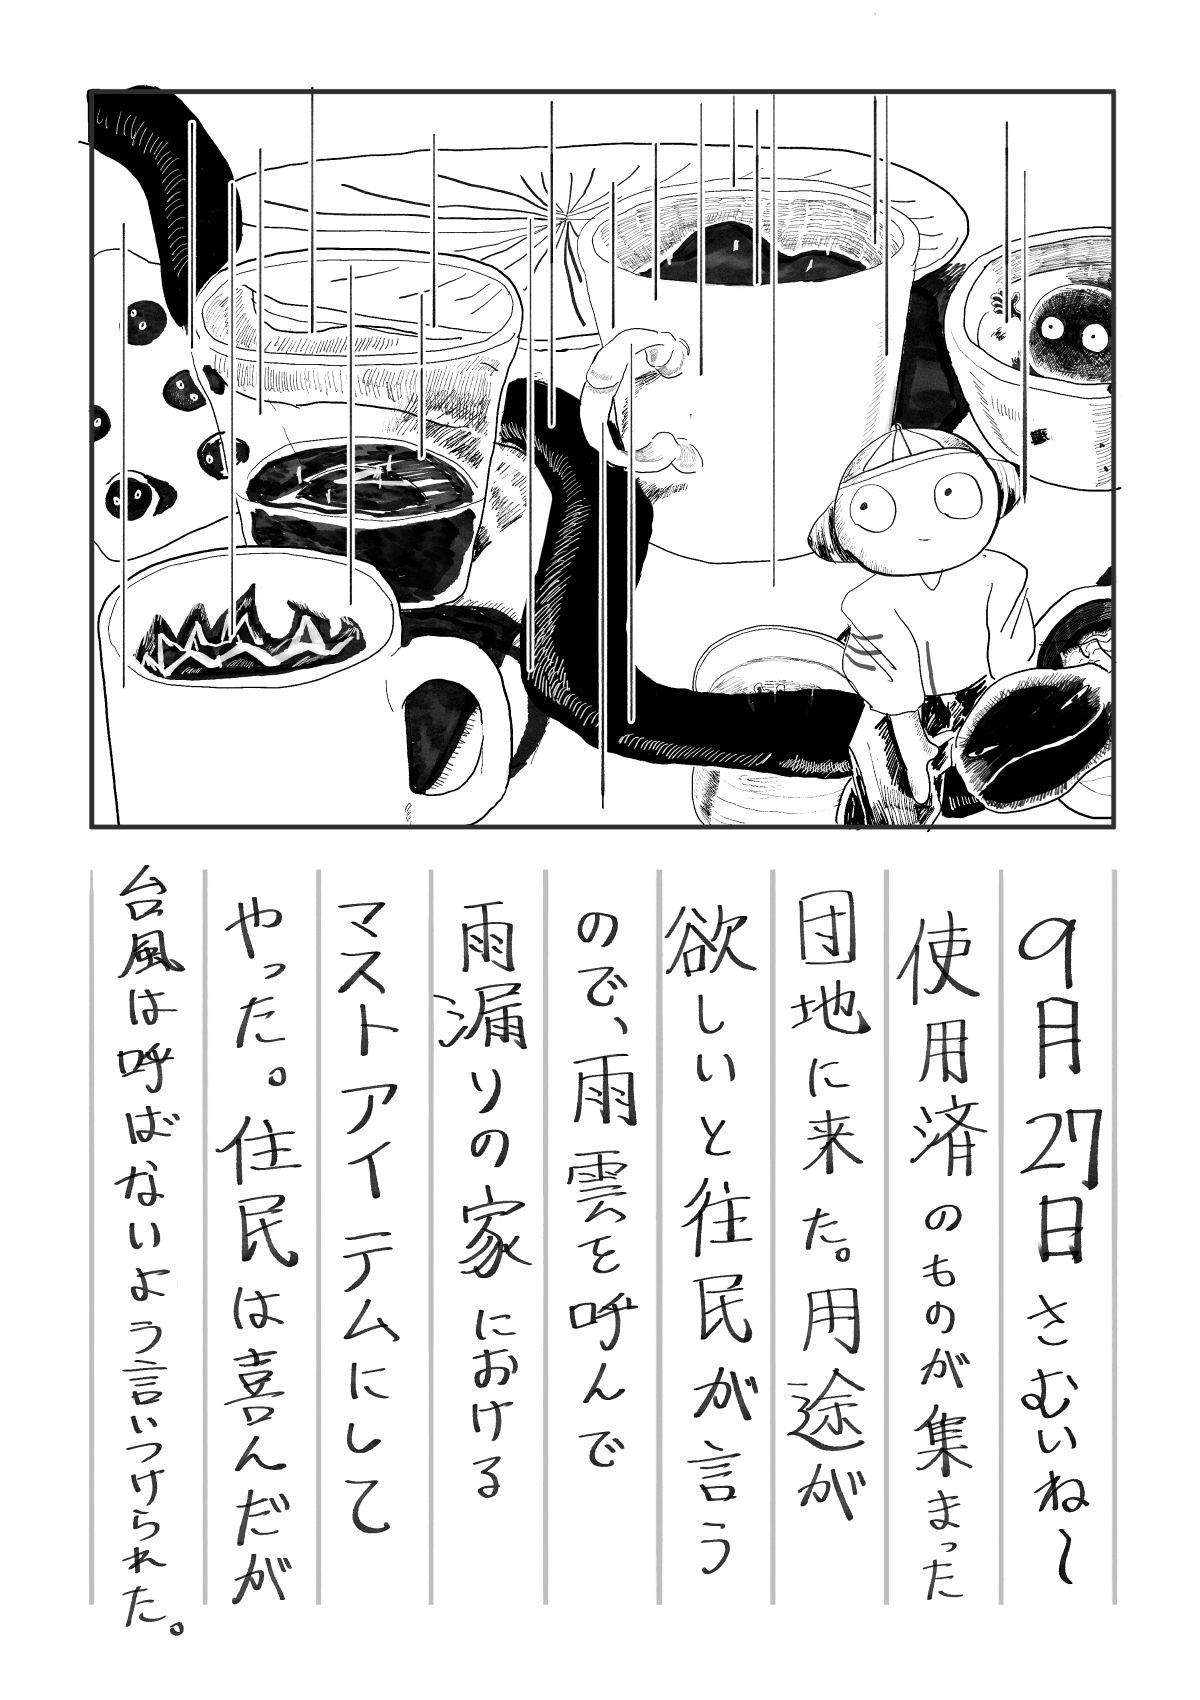 9月27日 さむいね〜
使用済のものが集まった
団地に来た。用途が
欲しいと往民が言う
ので、雨雲を呼んで
雨漏りの家における
マストアイテムにして
やった。住民は喜んだが
台風は呼ばないよう言いつけられた。